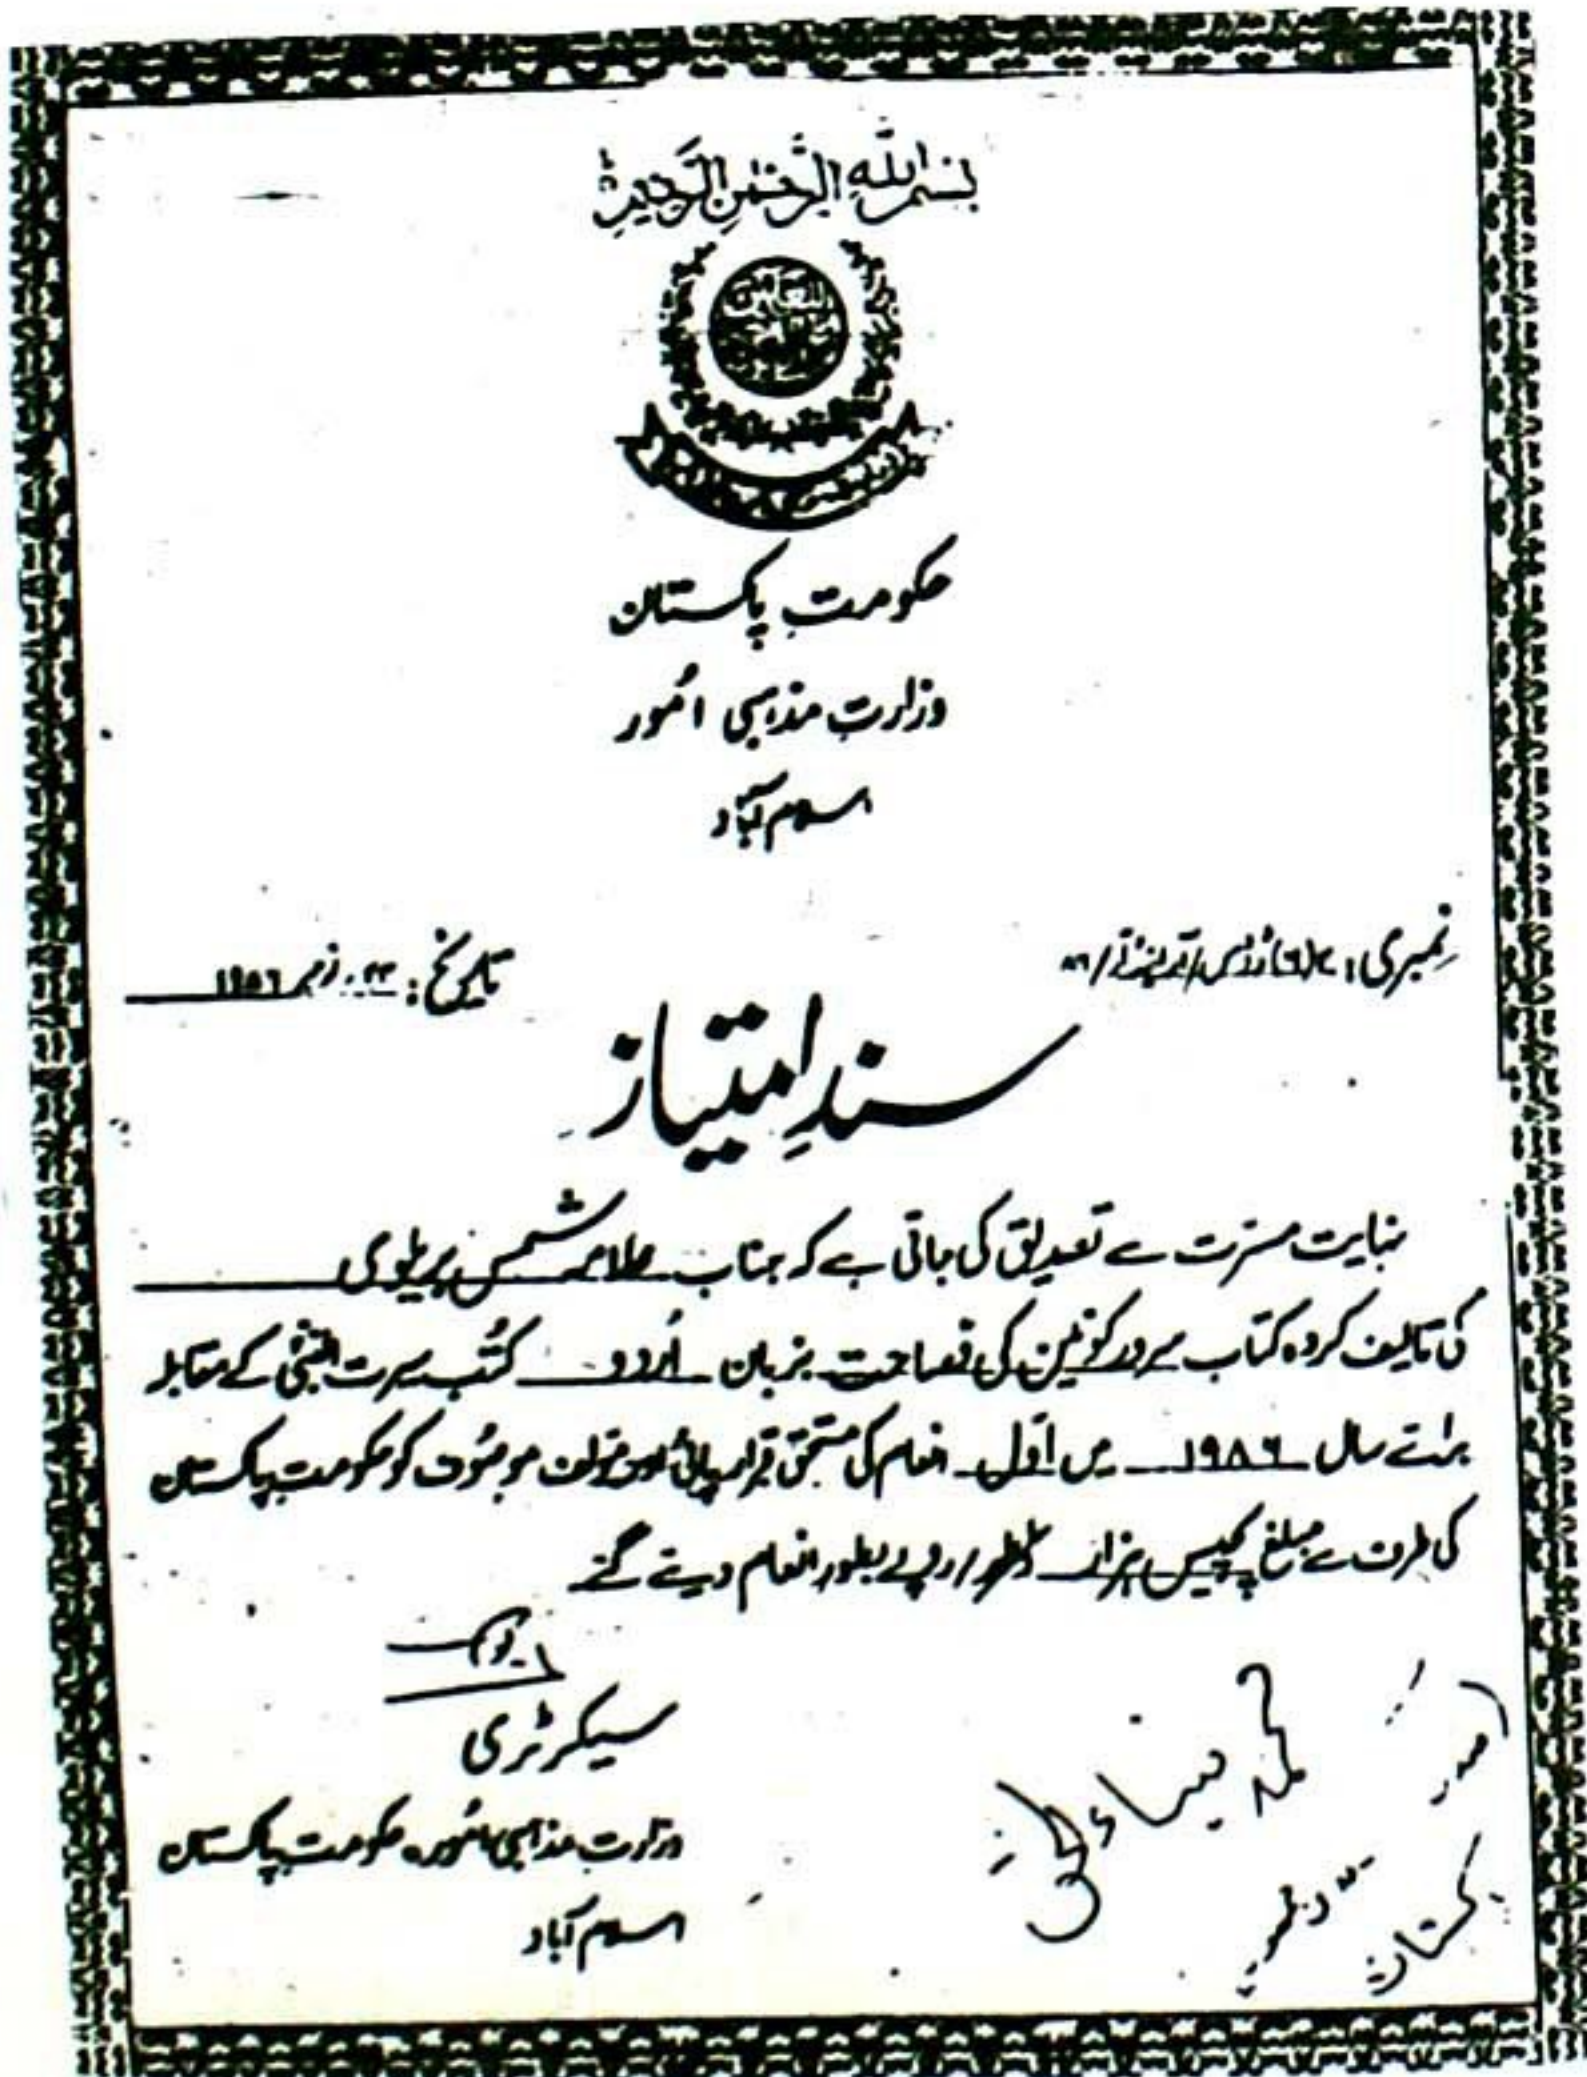 بسم الله الرحمن الرحيم
حکومت پاکستان
وزارت مذہبی امُور
اسلام آباد
نمبری:
تاریخ: ۲۳ نومبر ۱۹۸۶
سندِ امتیاز
نہایت مسرّت سے تصدیق کی جاتی ہے کہ جناب علامہ شمس بریلوی
کی تالیف کردہ کتاب سرور کونین کی فصاحت بزبان اُردو کتُب سیرت النبیؐ کے مقابلہ
برائے سال ۱۹۸۶ میں اوّل انعام کی مستحق قرار پائی اور مؤلف موصُوف کو حکومت پاکستان
کی طرف سے مبلغ پچیس ہزار روپے بطور انعام دیئے گئے
سیکرٹری
وزارت مذہبی امُور، حکومت پاکستان
اسلام آباد
محمد ضیاء الحق
صدر
پاکستان